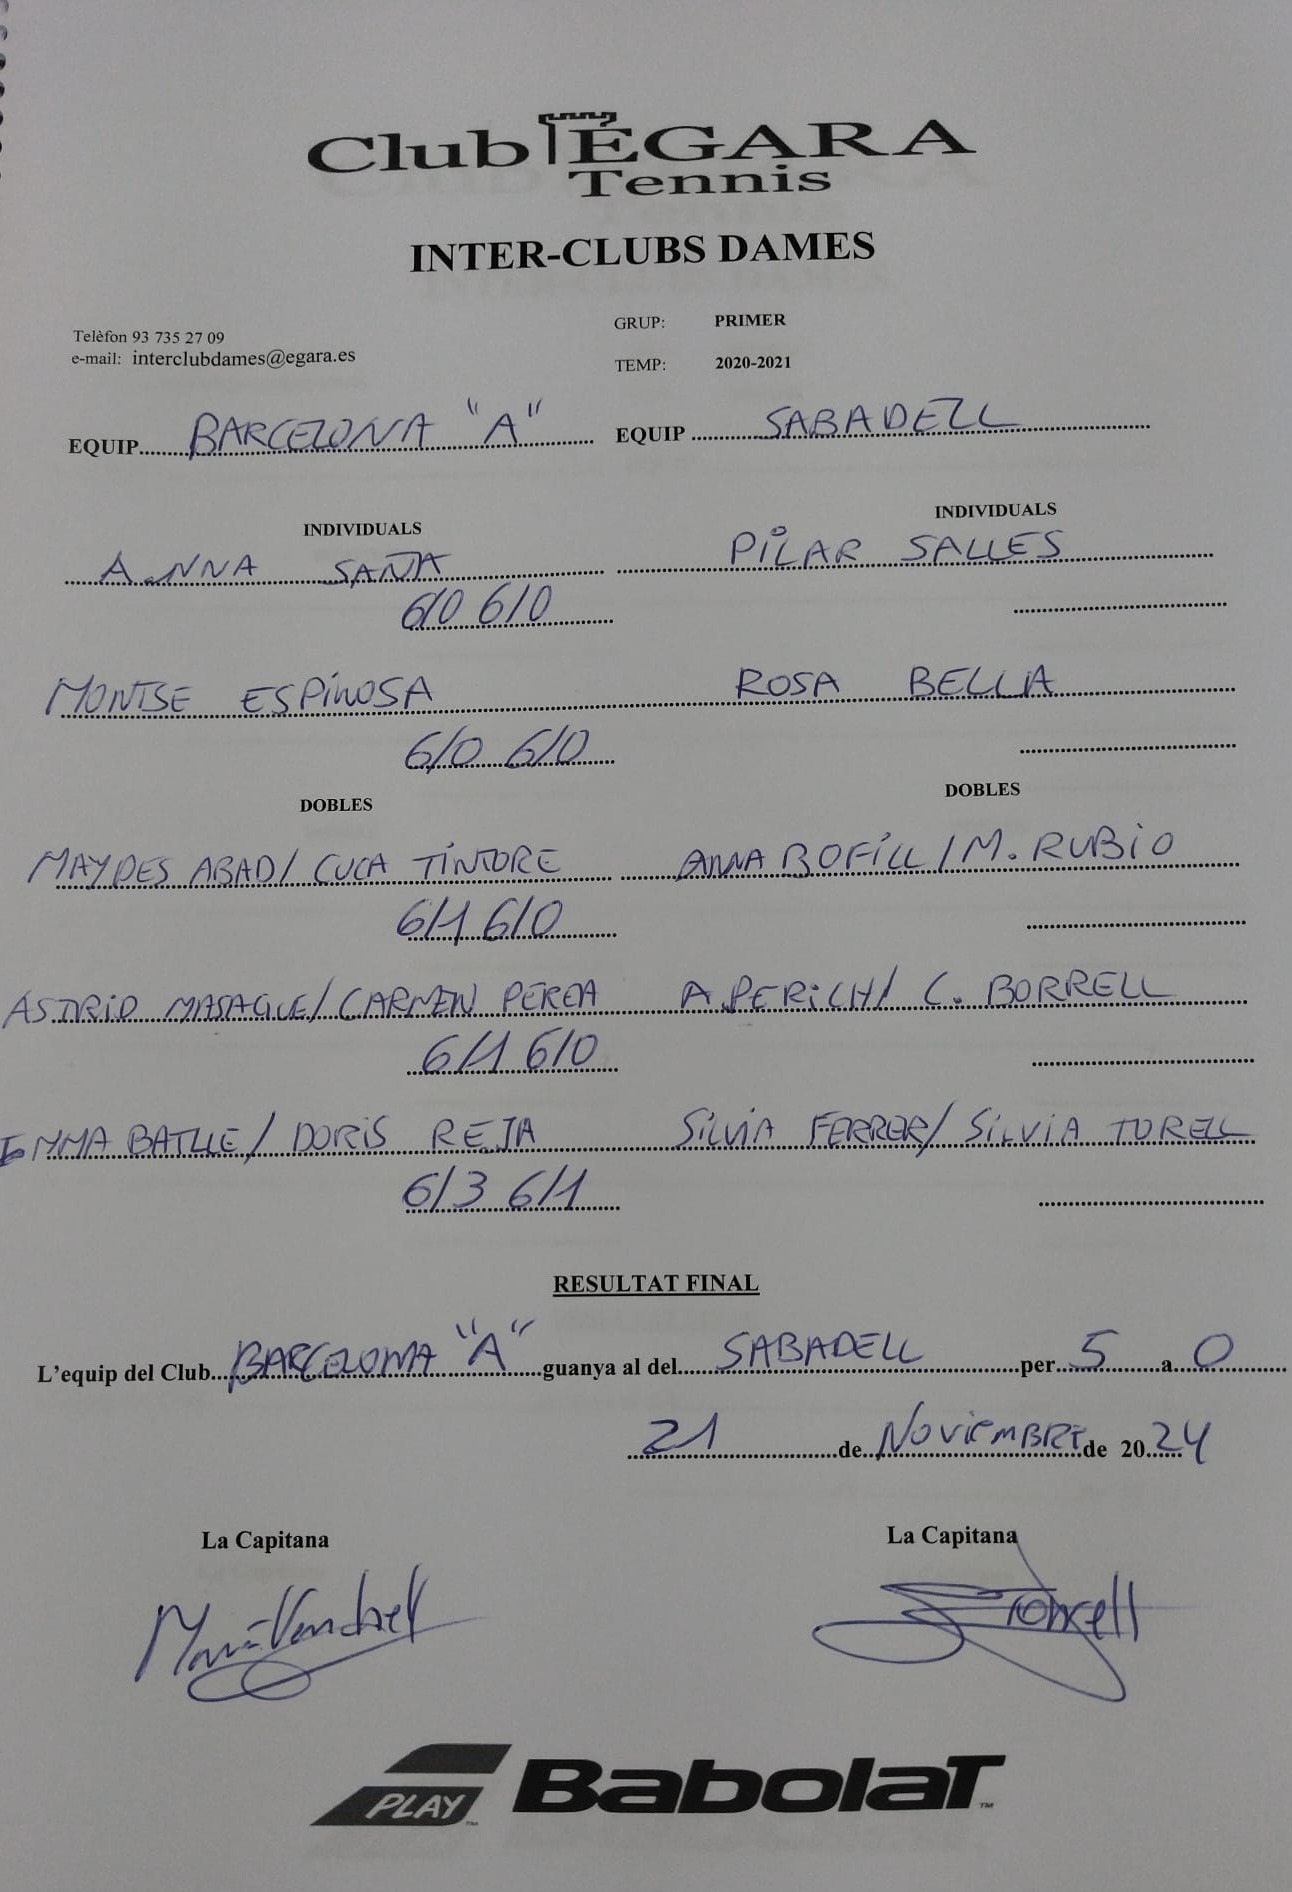 Club EGARA
Tennis
INTER-CLUBS DAMES
Telèfon 93 735 27 09
e-mail: interclubdames@egara.es
GRUP: PRIMER
TEMP: 2020-2021
EQUIP BARCELONA "A" EQUIP SABADELL
INDIVIDUALS INDIVIDUALS
ANNA SANTA PILAR SALLES
6/0 6/0
MONTSE ESPINOSA ROSA BELLA
6/0 6/0
DOBLES DOBLES
MAYDES ABAD / CUCA TINTORE ANNA BOFILL / M. RUBIO
6/1 6/0
ASTRID MASAGUE / CARMEN PEREA A. PERICH / C. BORRELL
6/1 6/0
EMMA BATLLE / DORIS REJA SILVIA FERRER / SILVIA TORELL
6/3 6/1
RESULTAT FINAL
L'equip del Club BARCELONA "A" guanya al del SABADELL per 5 a 0
21 de NOVIEMBRE de 2024
La Capitana La Capitana
PLAY BabolaT